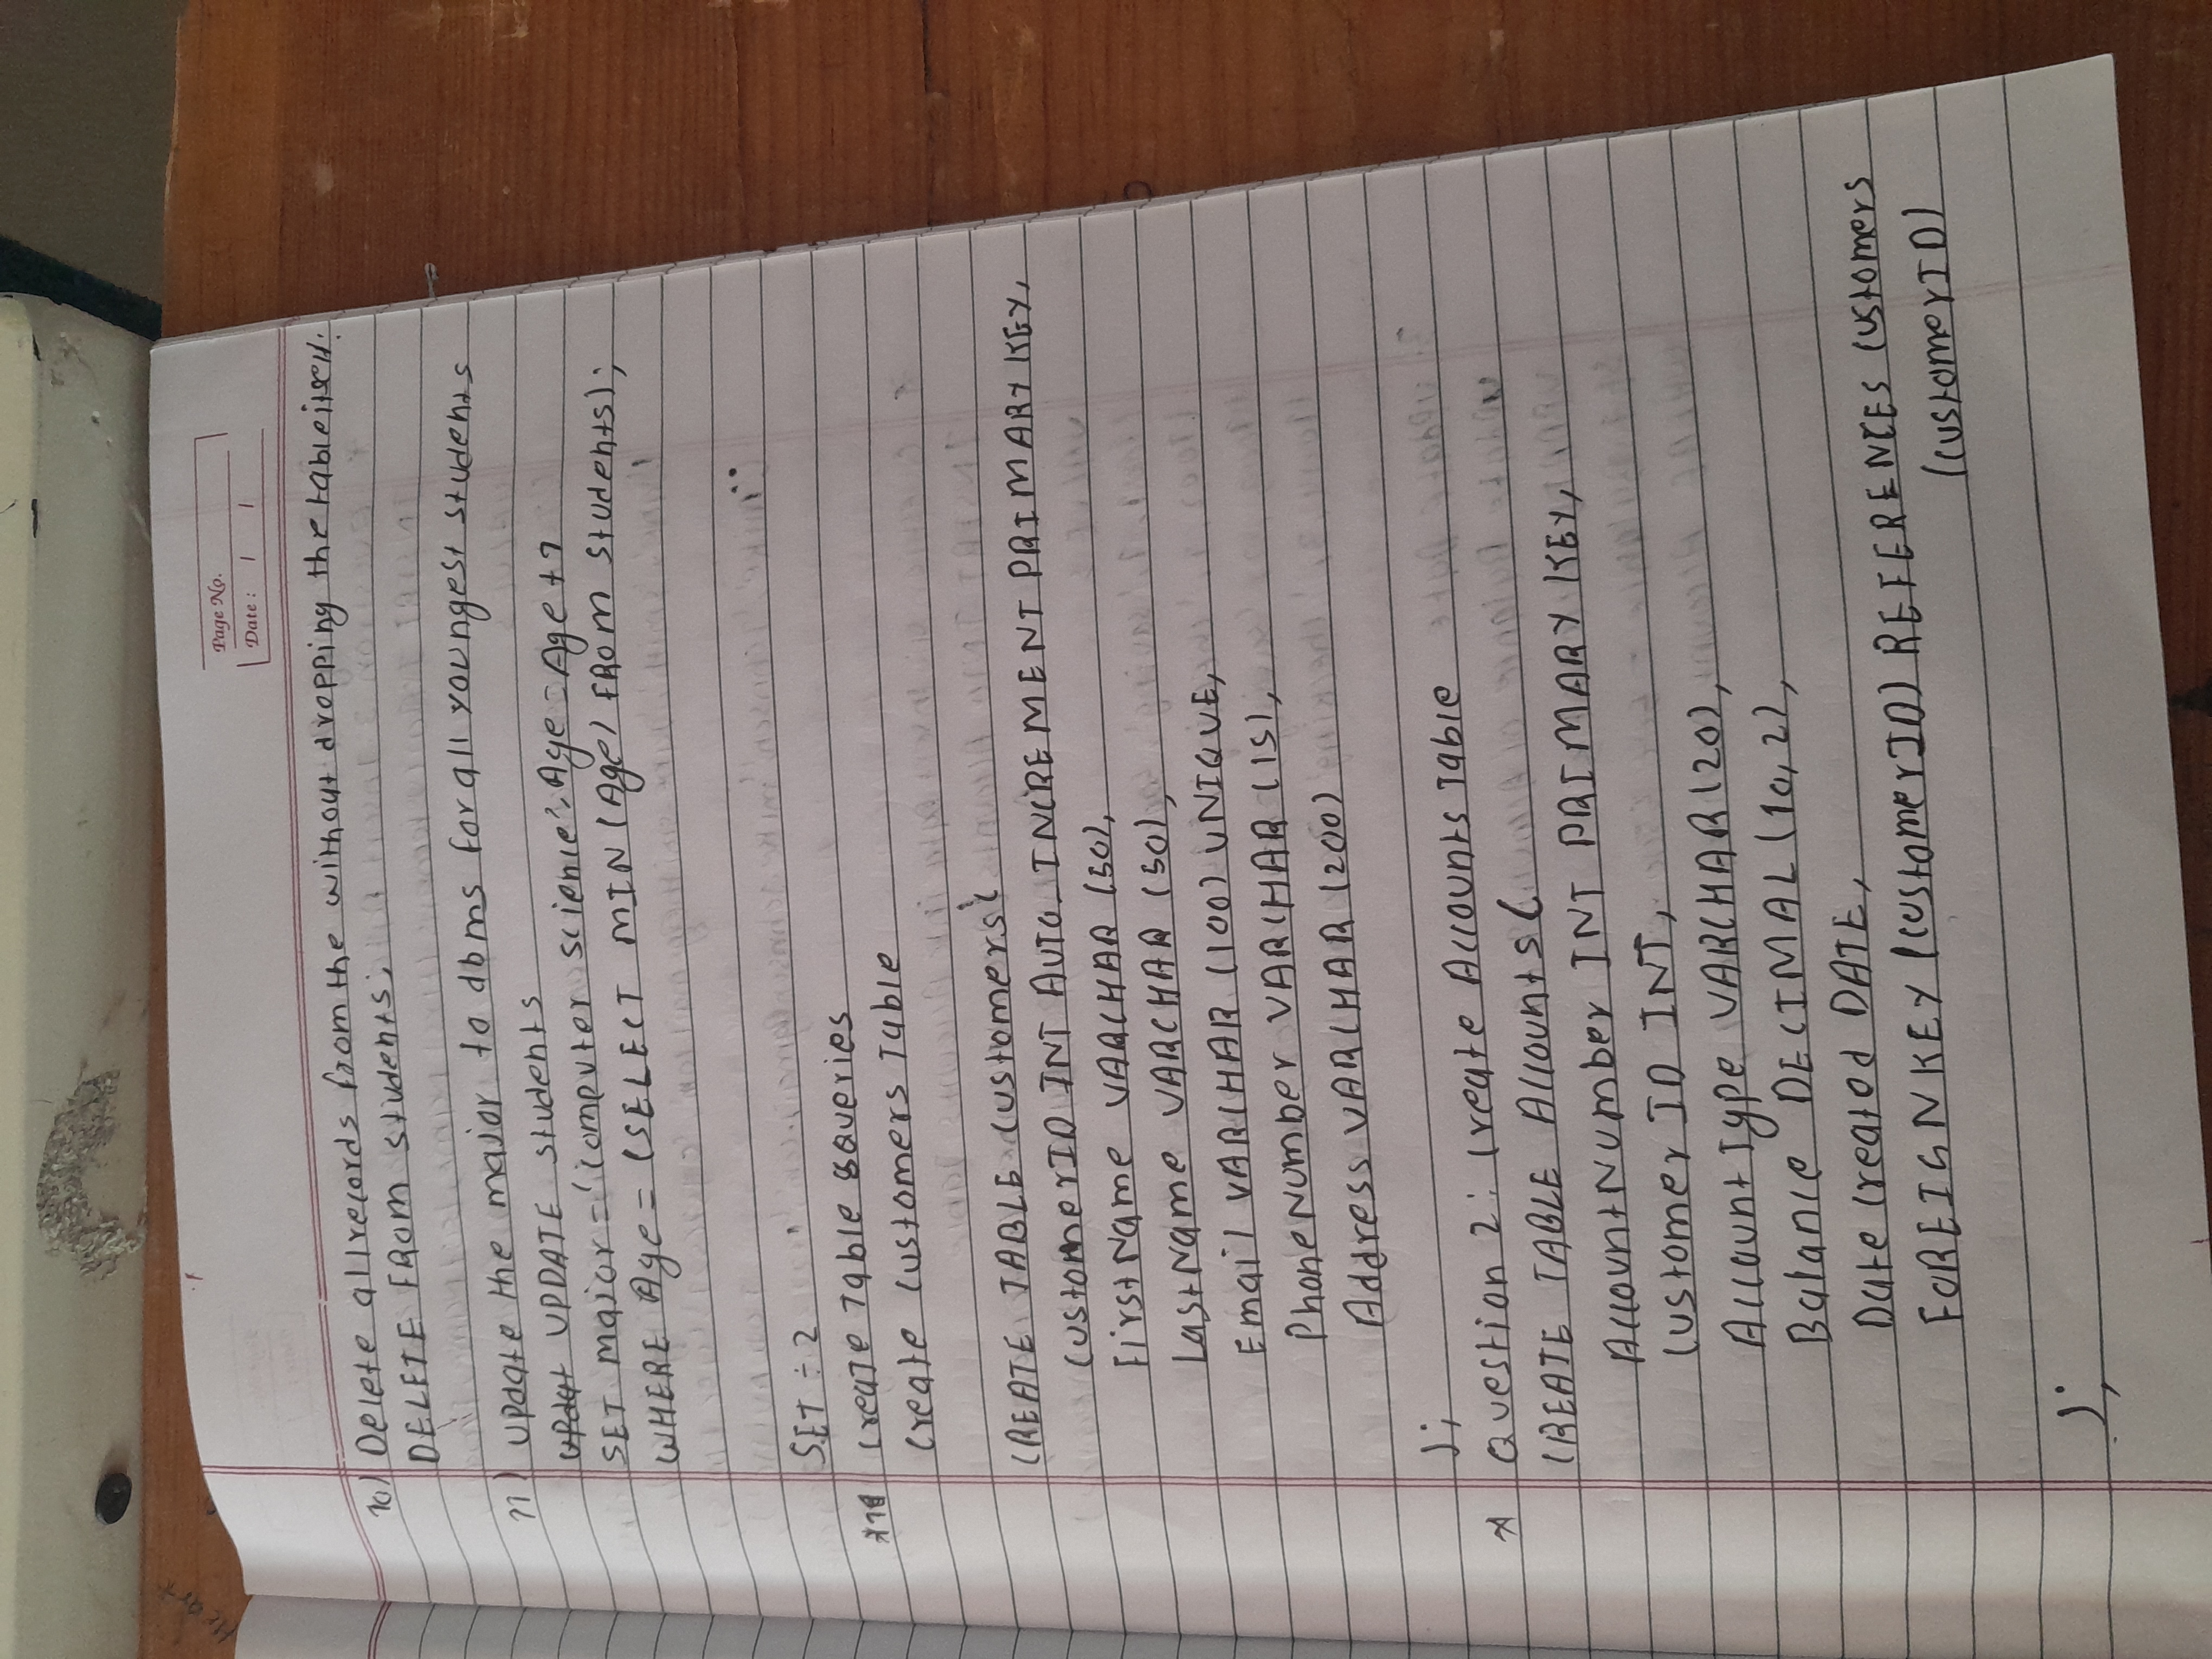 Page No.
Date :
10) Delete all records from the without dropping the table itself.
DELETE FROM students;
11) Update the major to dbms for all youngest students
UPDATE students
SET major = 'computer science', Age = Age + 1
WHERE Age = (SELECT MIN (Age) FROM students);
SET ÷ 2
Create Table Queries
Create Customers Table
CREATE TABLE Customers(
CustomerID INT AUTO_INCREMENT PRIMARY KEY,
FirstName VARCHAR (50),
LastName VARCHAR (50),
Email VARCHAR (100) UNIQUE,
PhoneNumber VARCHAR (15),
Address VARCHAR (200)
);
* Question 2: Create Accounts Table
CREATE TABLE Accounts (
AccountNumber INT PRIMARY KEY,
Customer ID INT,
Account Type VARCHAR (20),
Balance DECIMAL (10,2),
Date Created DATE,
FOREIGN KEY (customerID) REFERENCES Customers
(customerID)
);